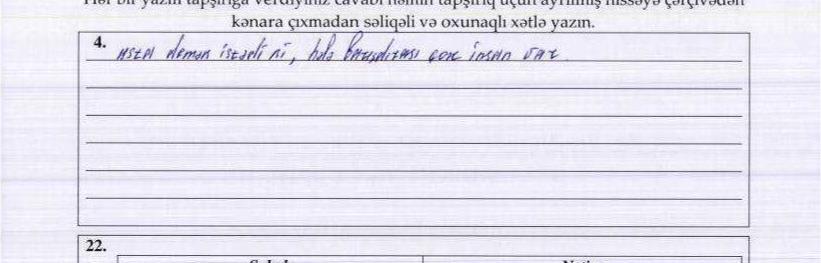 Hər bir yazılı tapşırığa verdiyiniz cavabı həmin tapşırıq üçün ayrılmış hissəyə çərçivədən
kənara çıxmadan səliqəli və oxunaqlı xətlə yazın.
4. demən istədi ki, hələ çox insan var
22.